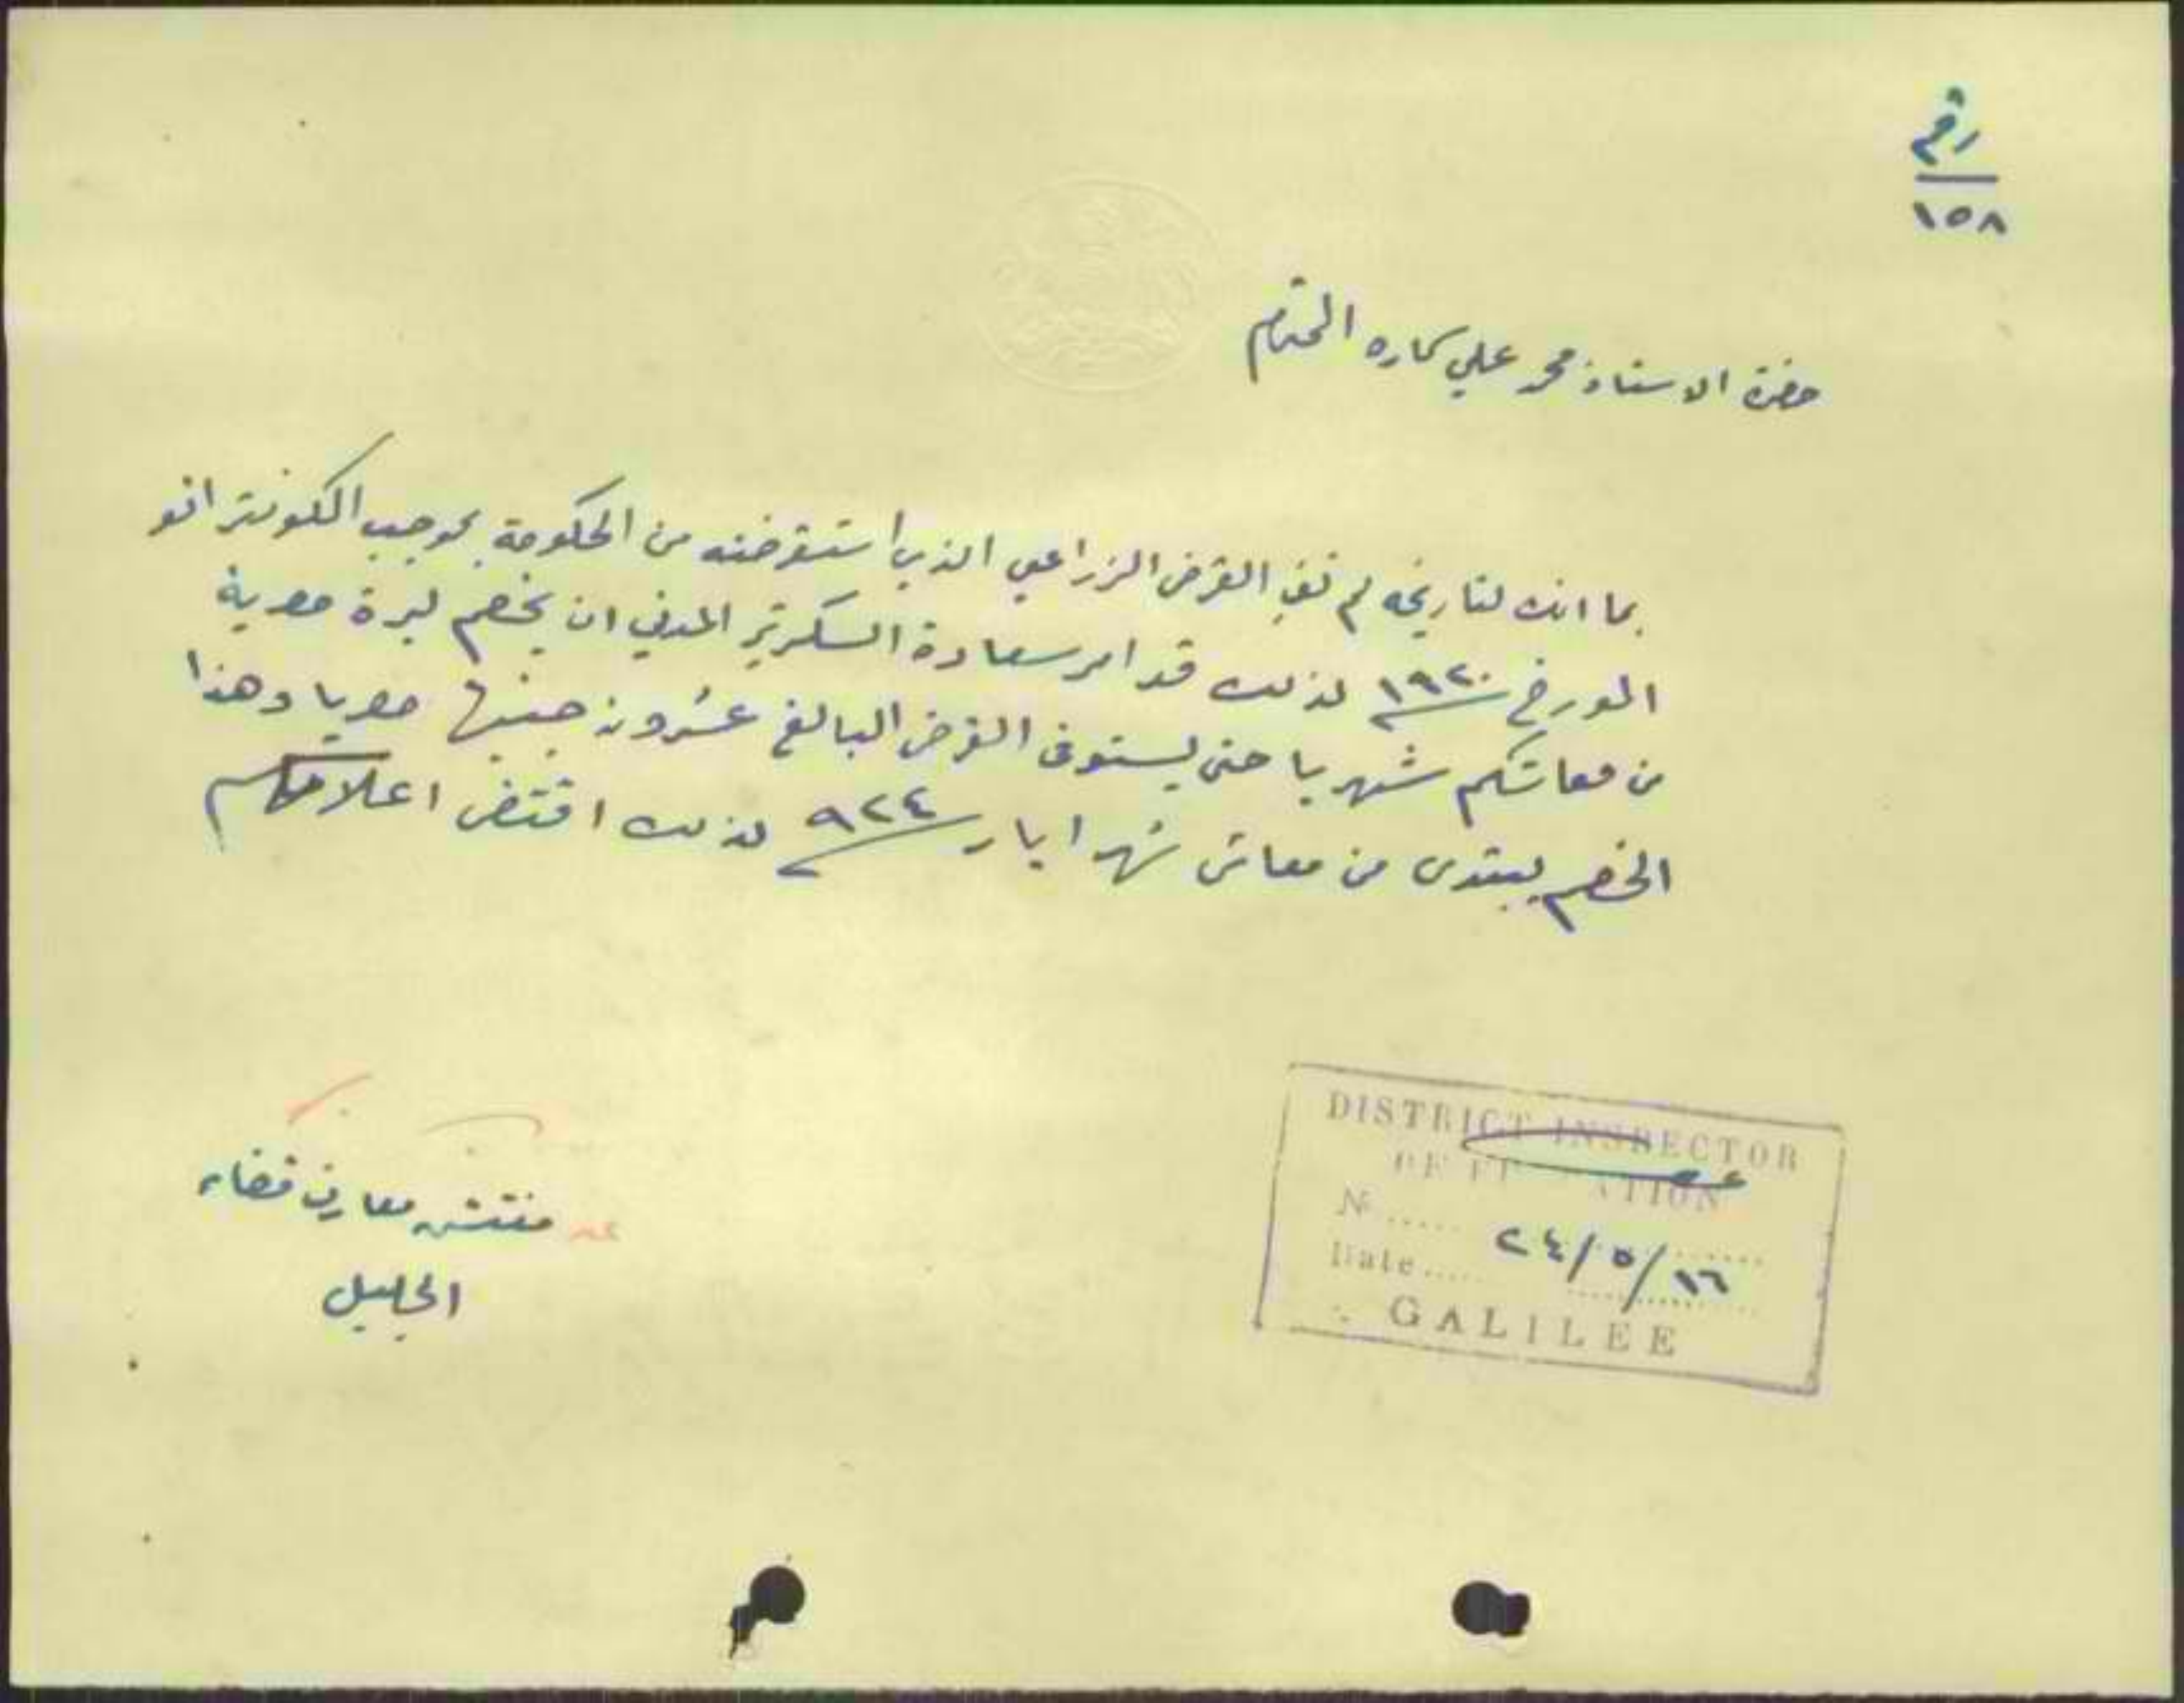 رقم
١٥٨
حضرة الاستاذ محمد علي المحترم
بما انك لتاريخه لم تفِ القرض الزراعي الذي استقرضته من الحكومة بموجب الكونتراتو
المورخ ١٩٢٠ لذلك قد امر سعادة السكرتير المدني ان يخصم ليرة مصرية
من معاشكم شهريا حتى يستوفى القرض البالغ عشرون جنيها مصريا وهذا
الخصم يبتدى من معاش شهر ايار ٩٢٤ لذلك اقتضى اعلامكم
عن مفتش معارف قضاء
الجليل
DISTRICT INSPECTOR
OF EDUCATION
№ ......
Date ...... ٢٤/٥/١٦
GALILEE